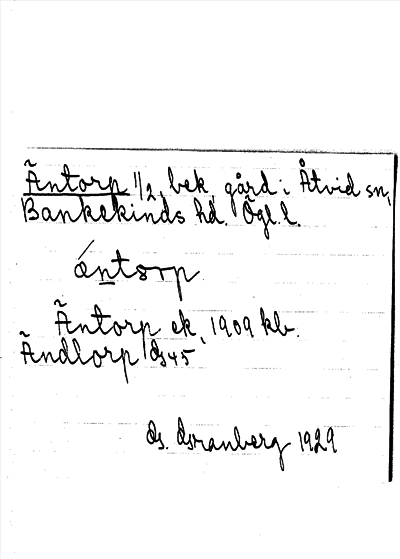 Äntorp 1/2, bek. gård i Åtvid sn,
Bankekinds hd. Ögl. l.
ántorp
Äntorp ek. 1909 kb.
Ändtorp ds 45
ds. 1929